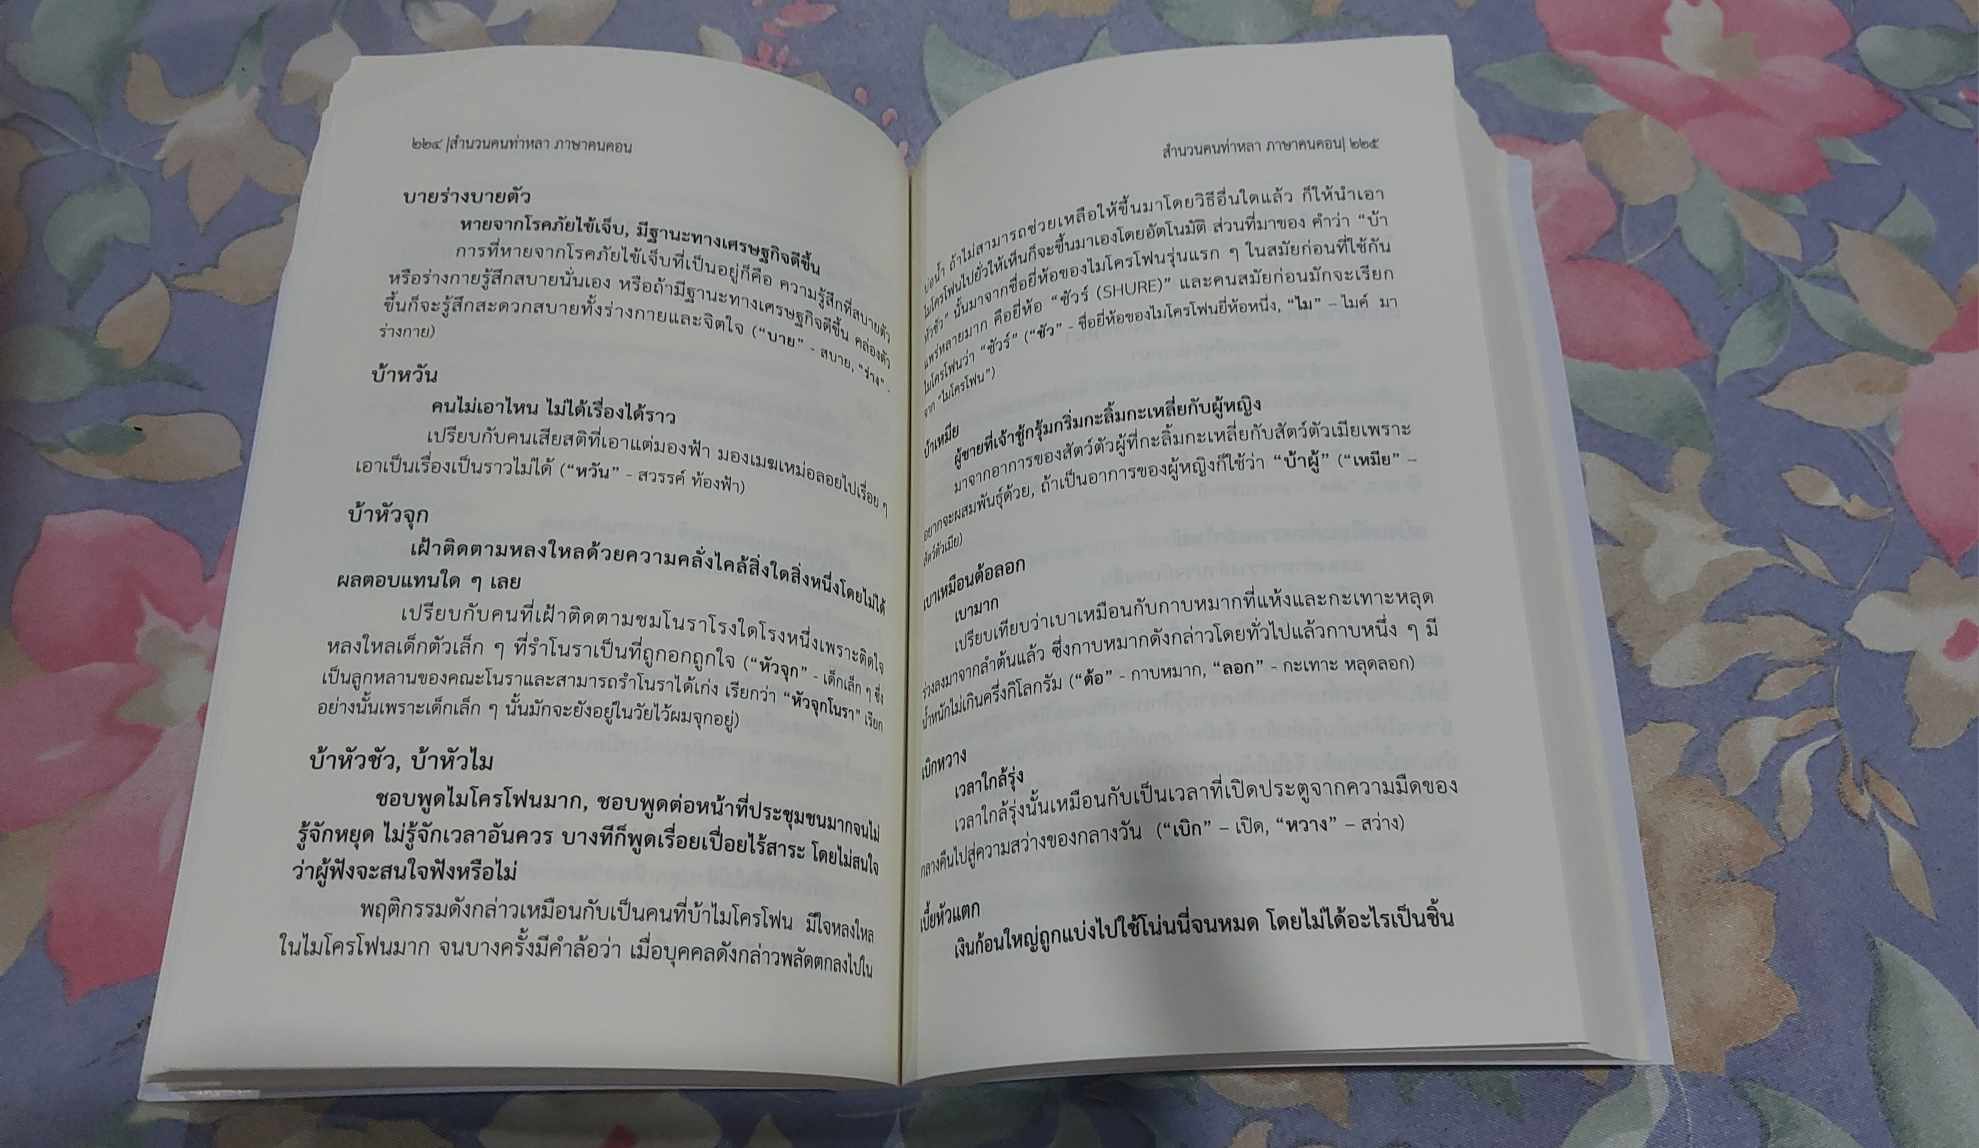 ๒๒๔ |สำนวนคนท่าหลา ภาษาคนคอน
บายร่างบายตัว
หายจากโรคภัยไข้เจ็บ, มีฐานะทางเศรษฐกิจดีขึ้น
การที่หายจากโรคภัยไข้เจ็บที่เป็นอยู่ก็คือ ความรู้สึกที่สบายตัว
หรือร่างกายรู้สึกสบายนั่นเอง หรือถ้ามีฐานะทางเศรษฐกิจดีขึ้น คล่องตัว
ขึ้นก็จะรู้สึกสะดวกสบายทั้งร่างกายและจิตใจ (“บาย” - สบาย, “ร่าง” -
ร่างกาย)
บ้าหวัน
คนไม่เอาไหน ไม่ได้เรื่องได้ราว
เปรียบกับคนเสียสติที่เอาแต่มองฟ้า มองเมฆเหม่อลอยไปเรื่อย ๆ
เอาเป็นเรื่องเป็นราวไม่ได้ (“หวัน” - สวรรค์ ท้องฟ้า)
บ้าหัวจุก
เฝ้าติดตามหลงใหลด้วยความคลั่งไคล้สิ่งใดสิ่งหนึ่งโดยไม่ได้
ผลตอบแทนใด ๆ เลย
เปรียบกับคนที่เฝ้าติดตามชมโนราโรงใดโรงหนึ่งเพราะติดใจ
หลงใหลเด็กตัวเล็ก ๆ ที่รำโนราเป็นที่ถูกอกถูกใจ (“หัวจุก” - เด็กเล็ก ๆ ซึ่ง
เป็นลูกหลานของคณะโนราและสามารถรำโนราได้เก่ง เรียกว่า “หัวจุกโนรา” เรียก
อย่างนั้นเพราะเด็กเล็ก ๆ นั้นมักจะยังอยู่ในวัยไว้ผมจุกอยู่)
บ้าหัวชัว, บ้าหัวไม
ชอบพูดไมโครโฟนมาก, ชอบพูดต่อหน้าที่ประชุมชนมากจนไม่
รู้จักหยุด ไม่รู้จักเวลาอันควร บางทีก็พูดเรื่อยเปื่อยไร้สาระ โดยไม่สนใจ
ว่าผู้ฟังจะสนใจฟังหรือไม่
พฤติกรรมดังกล่าวเหมือนกับเป็นคนที่บ้าไมโครโฟน มีใจหลงใหล
ในไมโครโฟนมาก จนบางครั้งมีคำล้อว่า เมื่อบุคคลดังกล่าวพลัดตกลงไปใน
สำนวนคนท่าหลา ภาษาคนคอน| ๒๒๕
บ่อน้ำ ถ้าไม่สามารถช่วยเหลือให้ขึ้นมาโดยวิธีอื่นใดแล้ว ก็ให้นำเอา
ไมโครโฟนไปยั่วให้เห็นก็จะขึ้นมาเองโดยอัตโนมัติ ส่วนที่มาของ คำว่า “บ้า
หัวชัว” นั้นมาจากชื่อยี่ห้อของไมโครโฟนรุ่นแรก ๆ ในสมัยก่อนที่ใช้กัน
แพร่หลายมาก คือยี่ห้อ “ชัวร์ (SHURE)” และคนสมัยก่อนมักจะเรียก
ไมโครโฟนว่า “ชัวร์” (“ชัว” - ชื่อยี่ห้อของไมโครโฟนยี่ห้อหนึ่ง, “ไม” – ไมค์ มา
จาก “ไมโครโฟน”)
บ้าเหมีย
ผู้ชายที่เจ้าชู้กรุ้มกริ่มกะลิ้มกะเหลี่ยกับผู้หญิง
มาจากอาการของสัตว์ตัวผู้ที่กะลิ้มกะเหลี่ยกับสัตว์ตัวเมียเพราะ
อยากจะผสมพันธุ์ด้วย, ถ้าเป็นอาการของผู้หญิงก็ใช้ว่า “บ้าผู้” (“เหมีย” –
สัตว์ตัวเมีย)
เบาเหมือนต้อลอก
เบามาก
เปรียบเทียบว่าเบาเหมือนกับกาบหมากที่แห้งและกะเทาะหลุด
ร่วงลงมาจากลำต้นแล้ว ซึ่งกาบหมากดังกล่าวโดยทั่วไปแล้วกาบหนึ่ง ๆ มี
น้ำหนักไม่เกินครึ่งกิโลกรัม (“ต้อ” - กาบหมาก, “ลอก” - กะเทาะ หลุดลอก)
เบิกหวาง
เวลาใกล้รุ่ง
เวลาใกล้รุ่งนั้นเหมือนกับเป็นเวลาที่เปิดประตูจากความมืดของ
กลางคืนไปสู่ความสว่างของกลางวัน (“เบิก” – เปิด, “หวาง” – สว่าง)
เบี้ยหัวแตก
เงินก้อนใหญ่ถูกแบ่งไปใช้โน่นนี่จนหมด โดยไม่ได้อะไรเป็นชิ้น